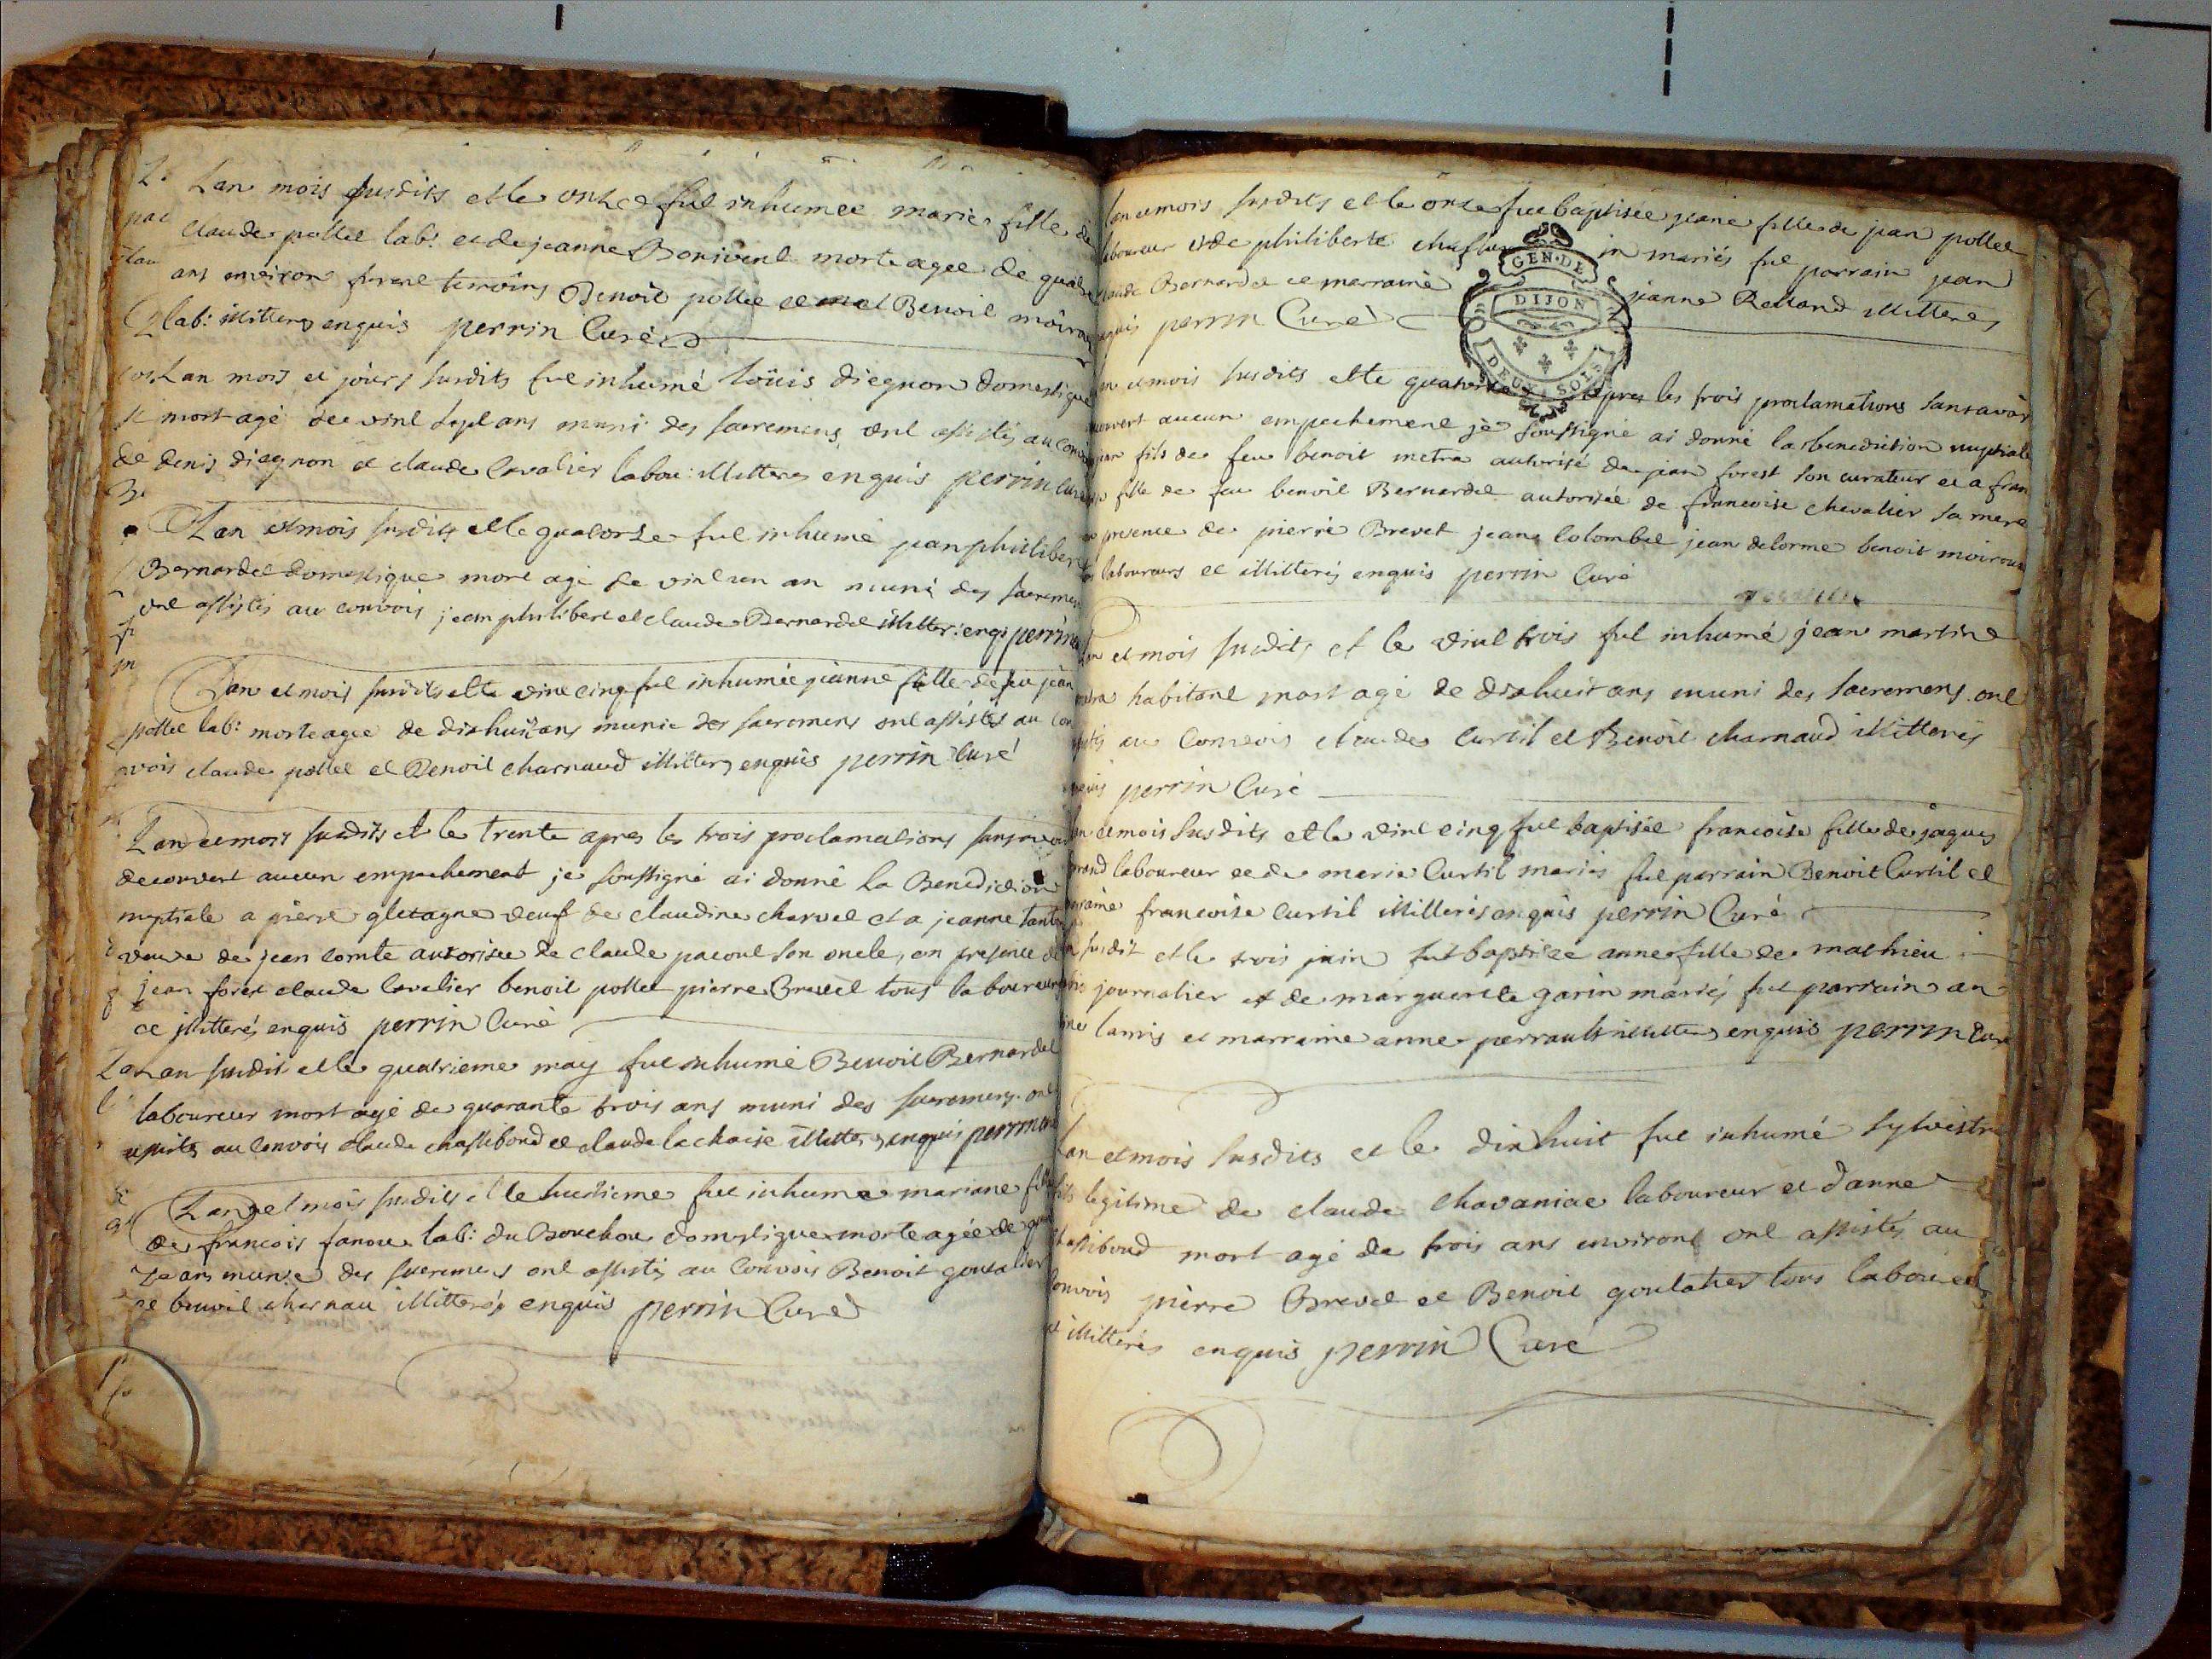 Lan mois susdits et le onze fut inhumee marie fille de
claude pollet lab: et de jeanne Bonivent morte agee de quatre
ans environ furent temoins Benoit pollet et Benoit moiroud
lab: illitteres enquis perrin Curé
Lan mois et jours susdits fut inhumé loüis diegnon domestique
mort agé de vint sept ans muni des sacremens ont assistés au convoi
de denis diegnon et claude Cavalier labou: illitteres enquis perrin Curé
Lan et mois susdits et le quatorze fut inhumé jean philibert
Bernardet domestique mort agé de vint un an muni des sacremens
ont assistés au convois jean philibert et claude Bernardet illitter: enqs perrin
Lan et mois susdits et le vint cinq fut inhumée jeanne fille de feu jean
pollet lab: morte agee de dixhuit ans munie des sacremens ont assistés au con
vois claude pollet et Benoit charnaud illitteres enquis perrin Curé
Lan et mois susdits et le trente apres les trois proclamations sans avoir
decouvert aucun empechement je soussigné ai donné la Benediction
nuptiale a pierre gletagne veuf de claudine charvet et a jeanne
veuve de jean comte autorisée de claude pacout son oncle, en presence de
jean forest claude Cavalier benoit pollet pierre Brevet tous laboureurs
et illitterés enquis perrin Curé
Lan susdit et le quatrieme may fut inhumé Benoit Bernardet
laboureur mort agé de quarante trois ans muni des sacremens ont
assistés au convois claude chassibout et claude lachaise illitteres enquis perrin
Lan et mois susdits et le huitieme fut inhumee mariane fille
de francois fanou lab: du Bouchou domestique morte agée de
ans munie des sacremens ont assistés au Convois Benoit goutalier
et benoit charnau illitterés enquis perrin Curé
lan et mois susdits et le onze fut baptisée jeane fille de jean pollet
laboureur et de philiberte mariés fut parrain jean
claude Bernardet et marraine jeanne Rolland illitteres
enquis perrin Curé
GEN. DE
DIJON
DEUX SOLS
lan et mois susdits et le quatorze apres les trois proclamations sans avoir
decouvert aucun empechement je soussigné ai donné la benediction nuptiale
fils de feu benoit metra autorisé de jean forest son curateur et a fran
fille de feu benoit Bernardet autorisée de francoise chevalier sa mere
presence de pierre Brevet jean Colombet jean delorme benoit moiroud
laboureurs et illitterés enquis perrin Curé
Lan et mois susdits et le vint trois fut inhumé jean martin
habitant mort agé de dixhuit ans muni des sacremens ont
assistés au Convois claude Curtil et Benoit charnaud illitterés
enquis perrin Curé
lan et mois susdits et le vint cinq fut baptisée francoise fille de jaques
laboureur et de marie Curtil mariés fut parrain Benoit Curtil et
marraine francoise Curtil illitterés enquis perrin Curé
lan susdit et le trois juin fut baptisée anne fille de mathieu
journalier et de marguerite garin mariés fut parrain an
lamis et marraine anne perrault illitteres enquis perrin Curé
lan et mois susdits et le dixhuit fut inhumé sylvestre
fils legitime de claude chavaniac laboureur et d'anne
chassibout mort agé de trois ans environt ont assistés au
convois pierre Brevet et Benoit goutalier tous laboureurs
et illitterés enquis perrin Curé